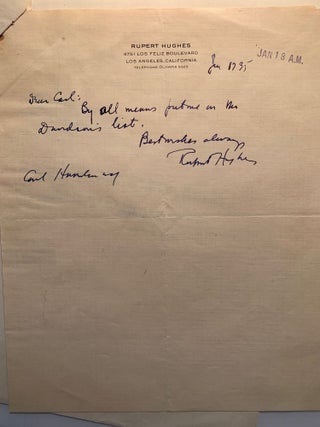 RUPERT HUGHES
4751 LOS FELIZ BOULEVARD
LOS ANGELES, CALIFORNIA
TELEPHONE OLYMPIA
Jan 17 35
JAN 18 A.M.
Dear Carl:
By all means put me on the
Davidson's list.
Best wishes always
Rupert Hughes
Carl